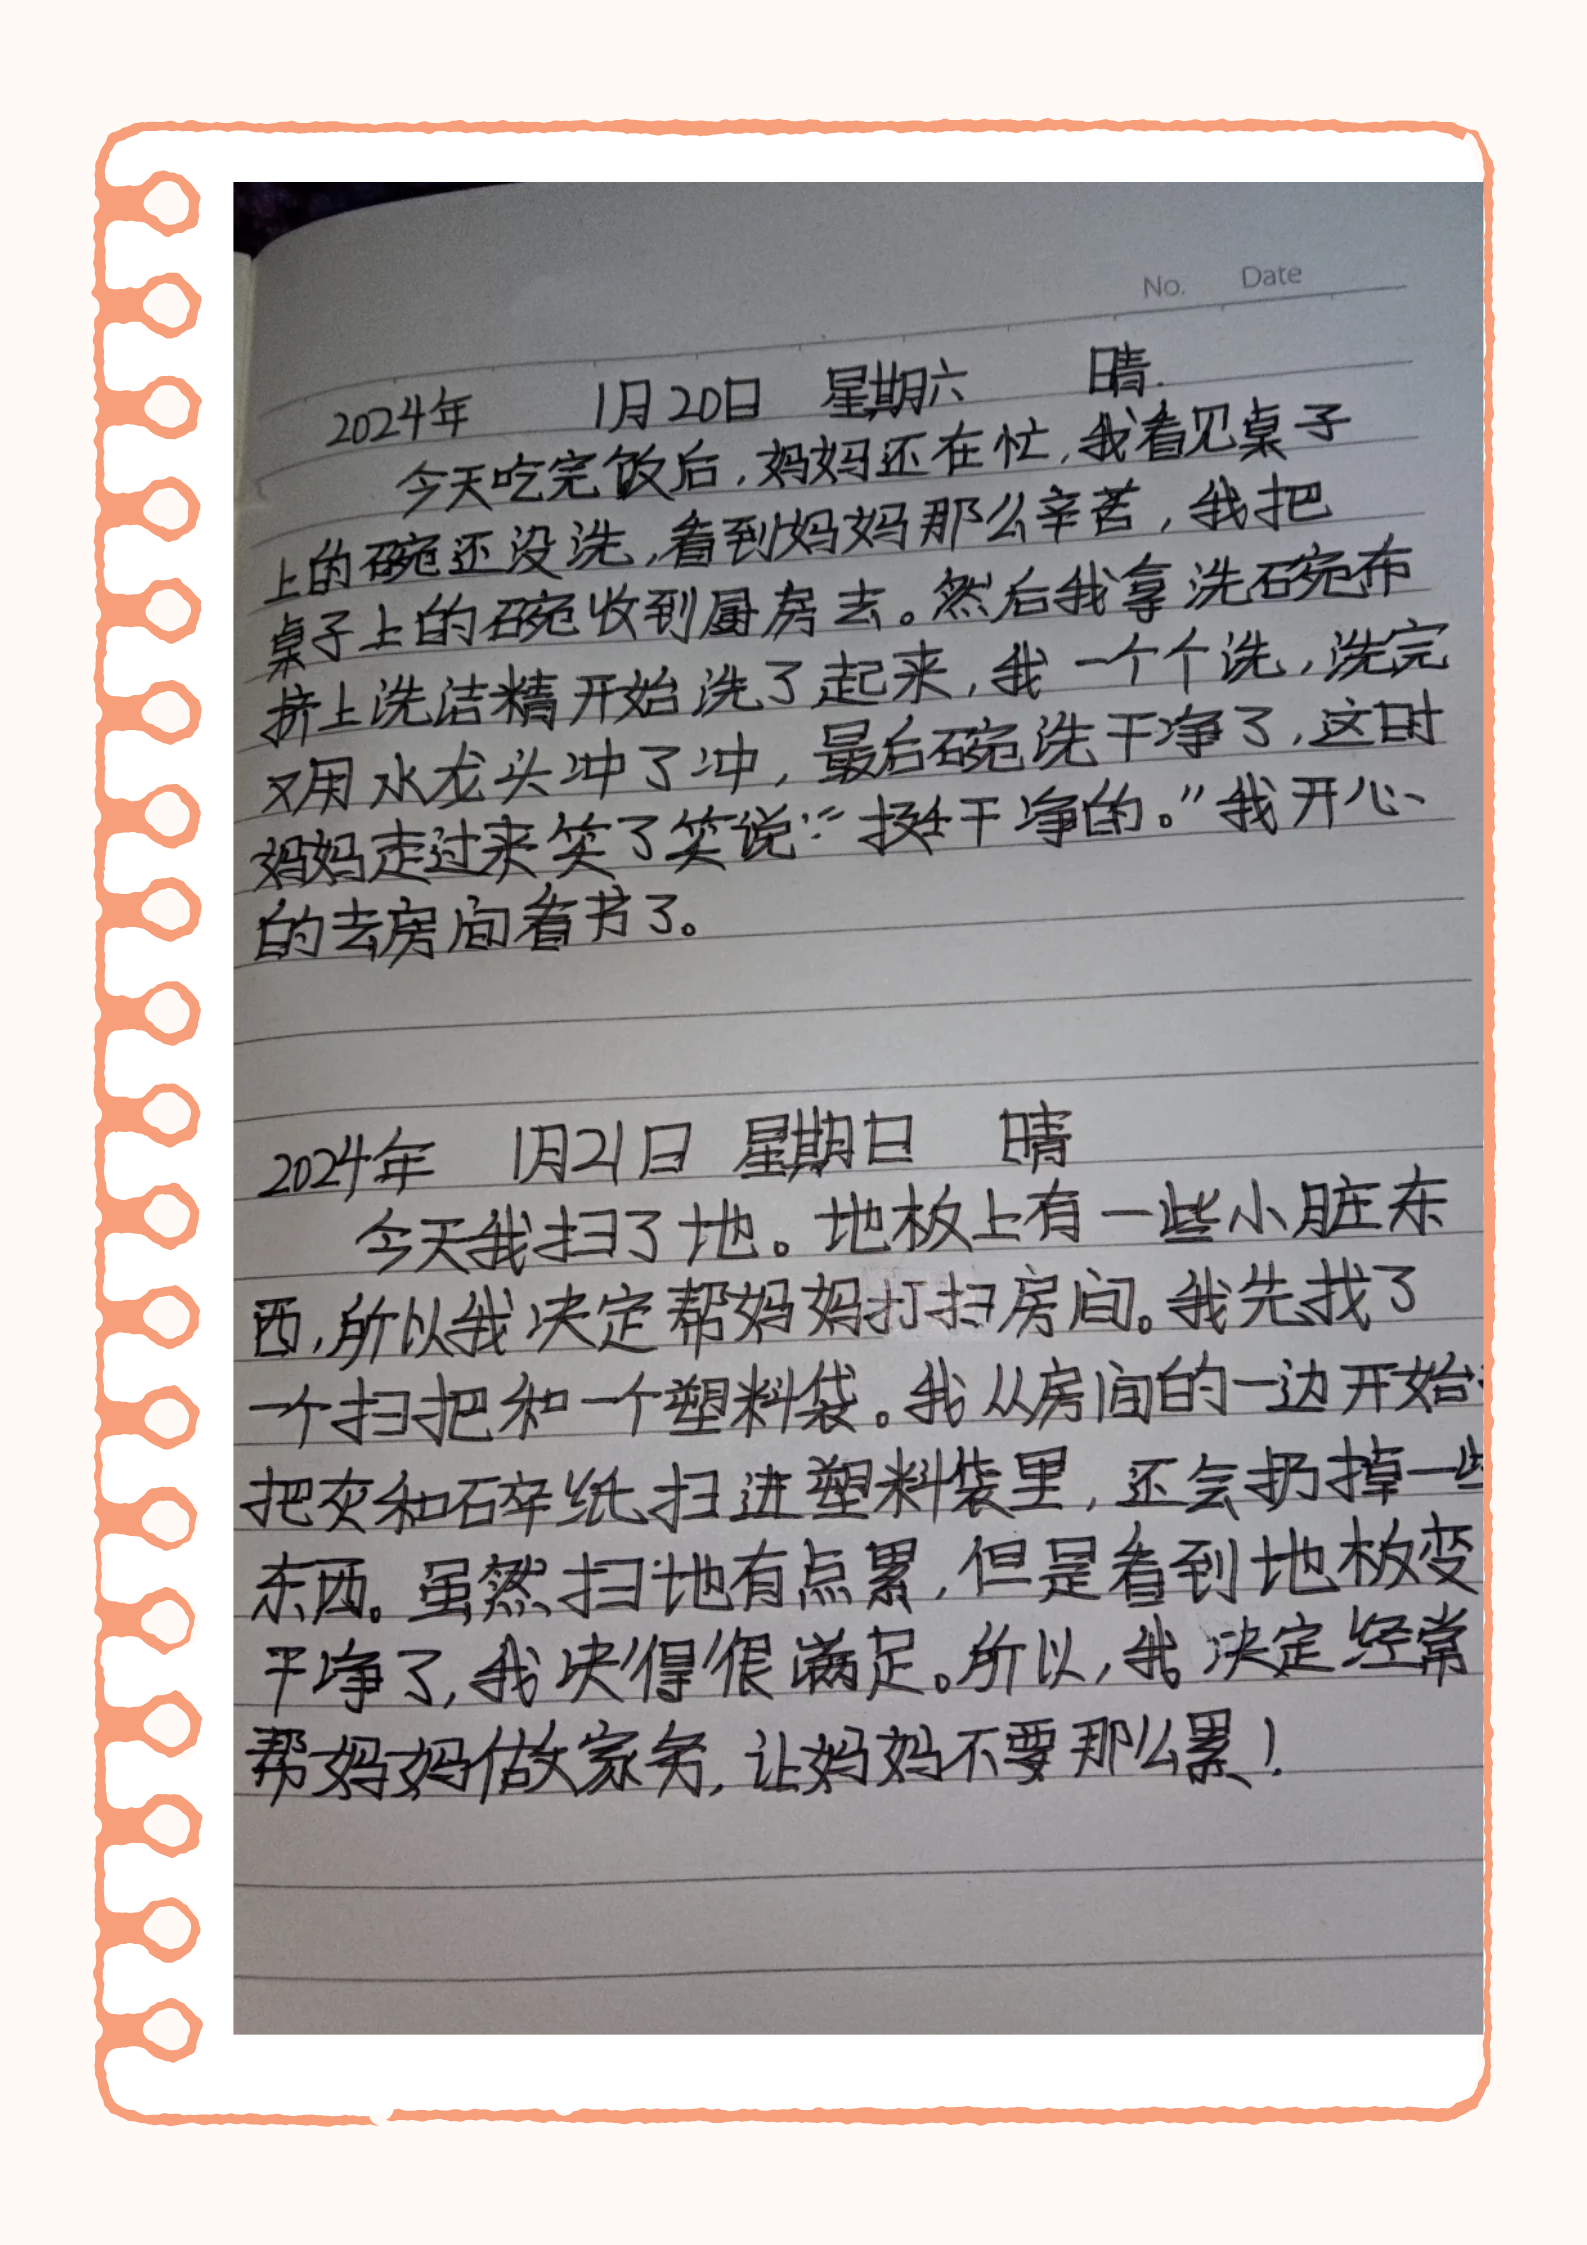 No. Date
2024年 1月20日 星期六 晴.
今天吃完饭后,妈妈还在忙,我看见桌子
上的碗还没洗,看到妈妈那么辛苦,我把
桌子上的碗收到厨房去。然后我拿洗碗布
挤上洗洁精开始洗了起来,我一个个洗,洗完
又用水龙头冲了冲,最后碗洗干净了,这时
妈妈走过来笑了笑说:“挺干净的。”我开心
的去房间看书了。
2024年 1月21日 星期日 晴
今天我扫了地。地板上有一些小脏东
西,所以我决定帮妈妈打扫房间。我先找了
一个扫把和一个塑料袋。我从房间的一边开始
把灰和碎纸扫进塑料袋里,还会扔掉一些
东西。虽然扫地有点累,但是看到地板变
干净了,我决得很满足。所以,我决定经常
帮妈妈做家务,让妈妈不要那么累!